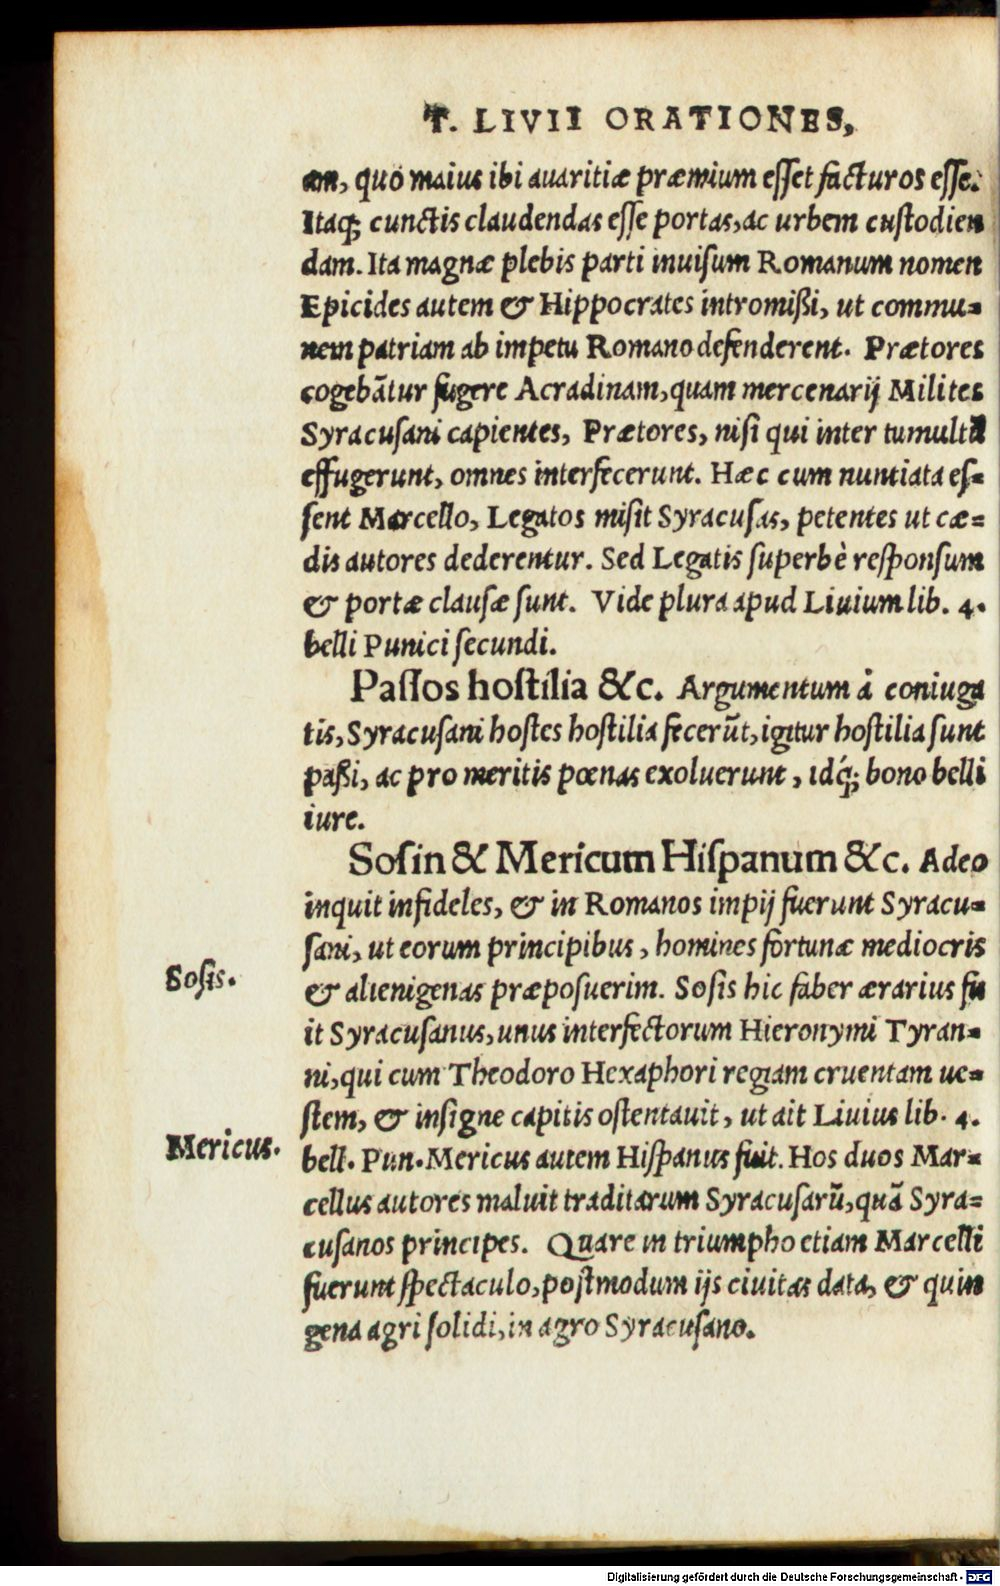 T. LIVII ORATIONES,
am, quò maius ibi auaritiæ præmium eſſet facturos eſſe.
Itaq; cunctis claudendas eſſe portas, ac urbem cuſtodien
dam. Ita magnæ plebis parti inuiſum Romanum nomen
Epicides autem & Hippocrates intromißi, ut commu-
nem patriam ab impetu Romano defenderent. Prætores
cogebātur fugere Acradinam, quam mercenarij Milites
Syracuſani capientes, Prætores, niſi qui inter tumultū
effugerunt, omnes interfecerunt. Hæc cum nuntiata eſ-
ſent Marcello, Legatos miſit Syracuſas, petentes ut cæ-
dis autores dederentur. Sed Legatis ſuperbè reſponſum
& portæ clauſæ ſunt. Vide plura apud Liuium lib. 4.
belli Punici ſecundi.
Paſſos hoſtilia &c. Argumentum á coniuga
tis, Syracuſani hoſtes hoſtilia fecerūt, igitur hoſtilia ſunt
paßi, ac pro meritis pœnas exoluerunt, idq́; bono belli
iure.
Soſin & Mericum Hiſpanum &c. Adeo
inquit infideles, & in Romanos impij fuerunt Syracu-
ſani, ut eorum principibus, homines fortunæ mediocris
Soſis.
& alienigenas præpoſuerim. Soſis hic faber ærarius fu
it Syracuſanus, unus interfectorum Hieronymi Tyran-
ni, qui cum Theodoro Hexaphori regiam cruentam ue-
ſtem, & inſigne capitis oſtentauit, ut ait Liuius lib. 4.
Mericus.
bell. Pun. Mericus autem Hiſpanus fuit. Hos duos Mar-
cellus autores maluit traditarum Syracuſarū, quā Syra-
cuſanos principes. Quare in triumpho etiam Marcelli
fuerunt ſpectaculo, poſtmodum ijs ciuitas data, & quin
gena agri ſolidi, in agro Syracuſano.
Digitalisierung gefördert durch die Deutsche Forschungsgemeinschaft - DFG